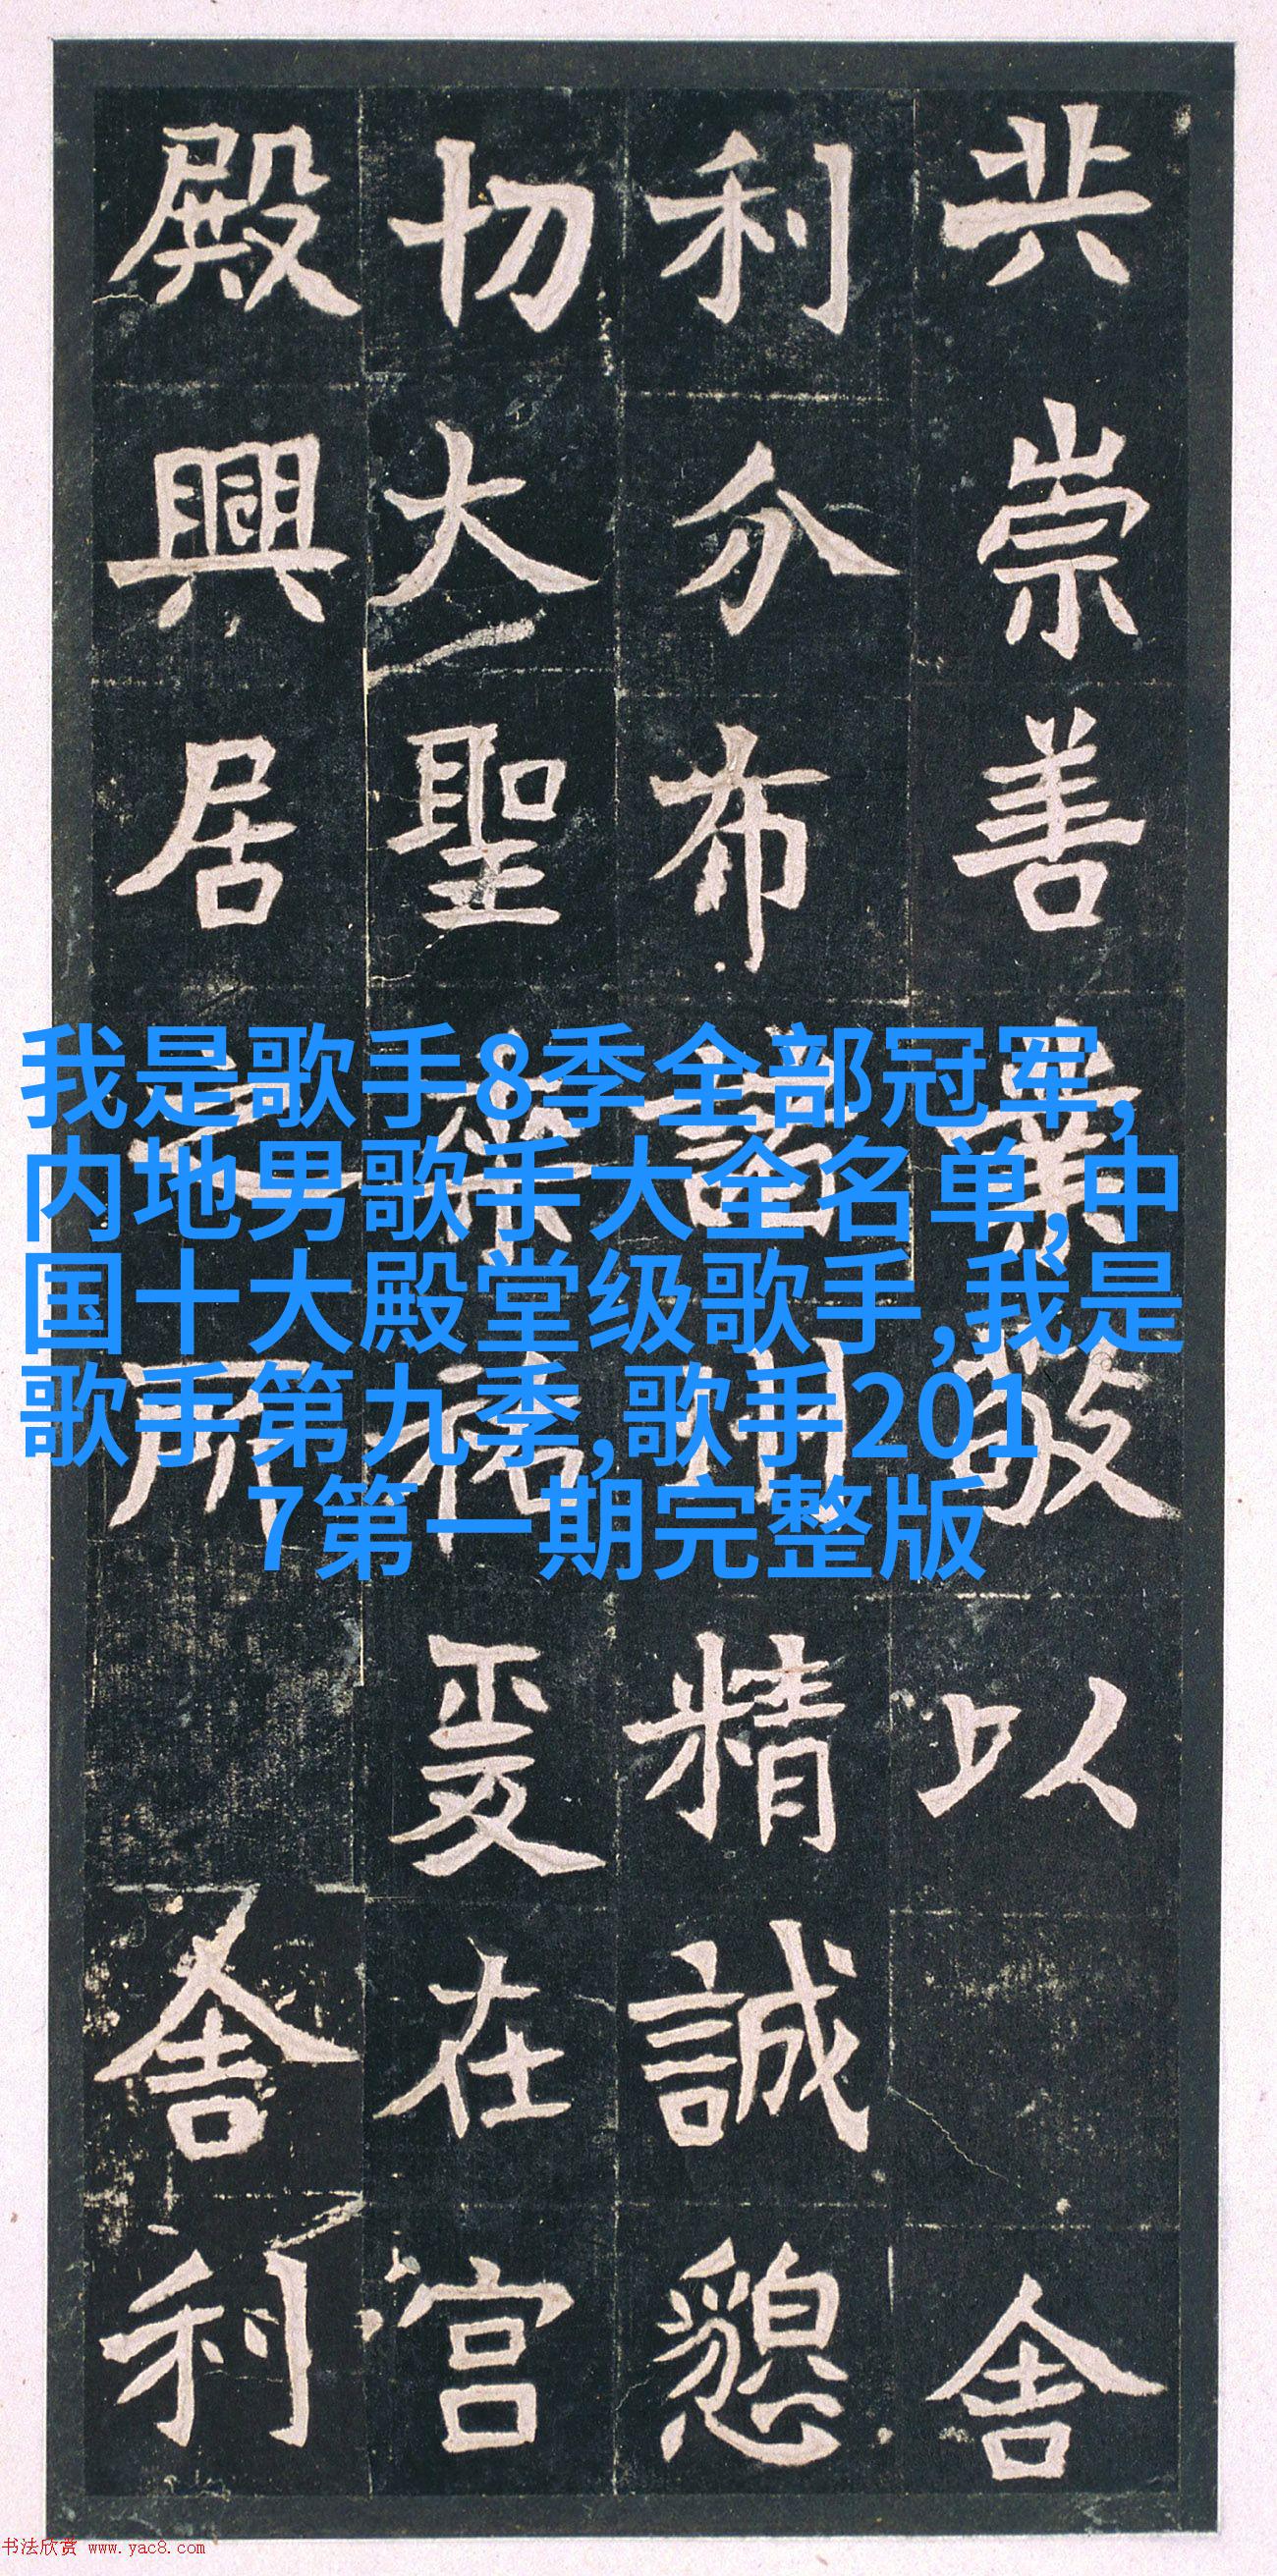 共崇善業敬以舍
利分布諸州精誠懇
切大聖祐爰在宫
殿興居之所舍利
我是歌手8季全部冠军,
内地男歌手大全名单,中
国十大殿堂级歌手,我是
歌手第九季,歌手201
7第一期完整版
书法欣赏 www.yac8.com